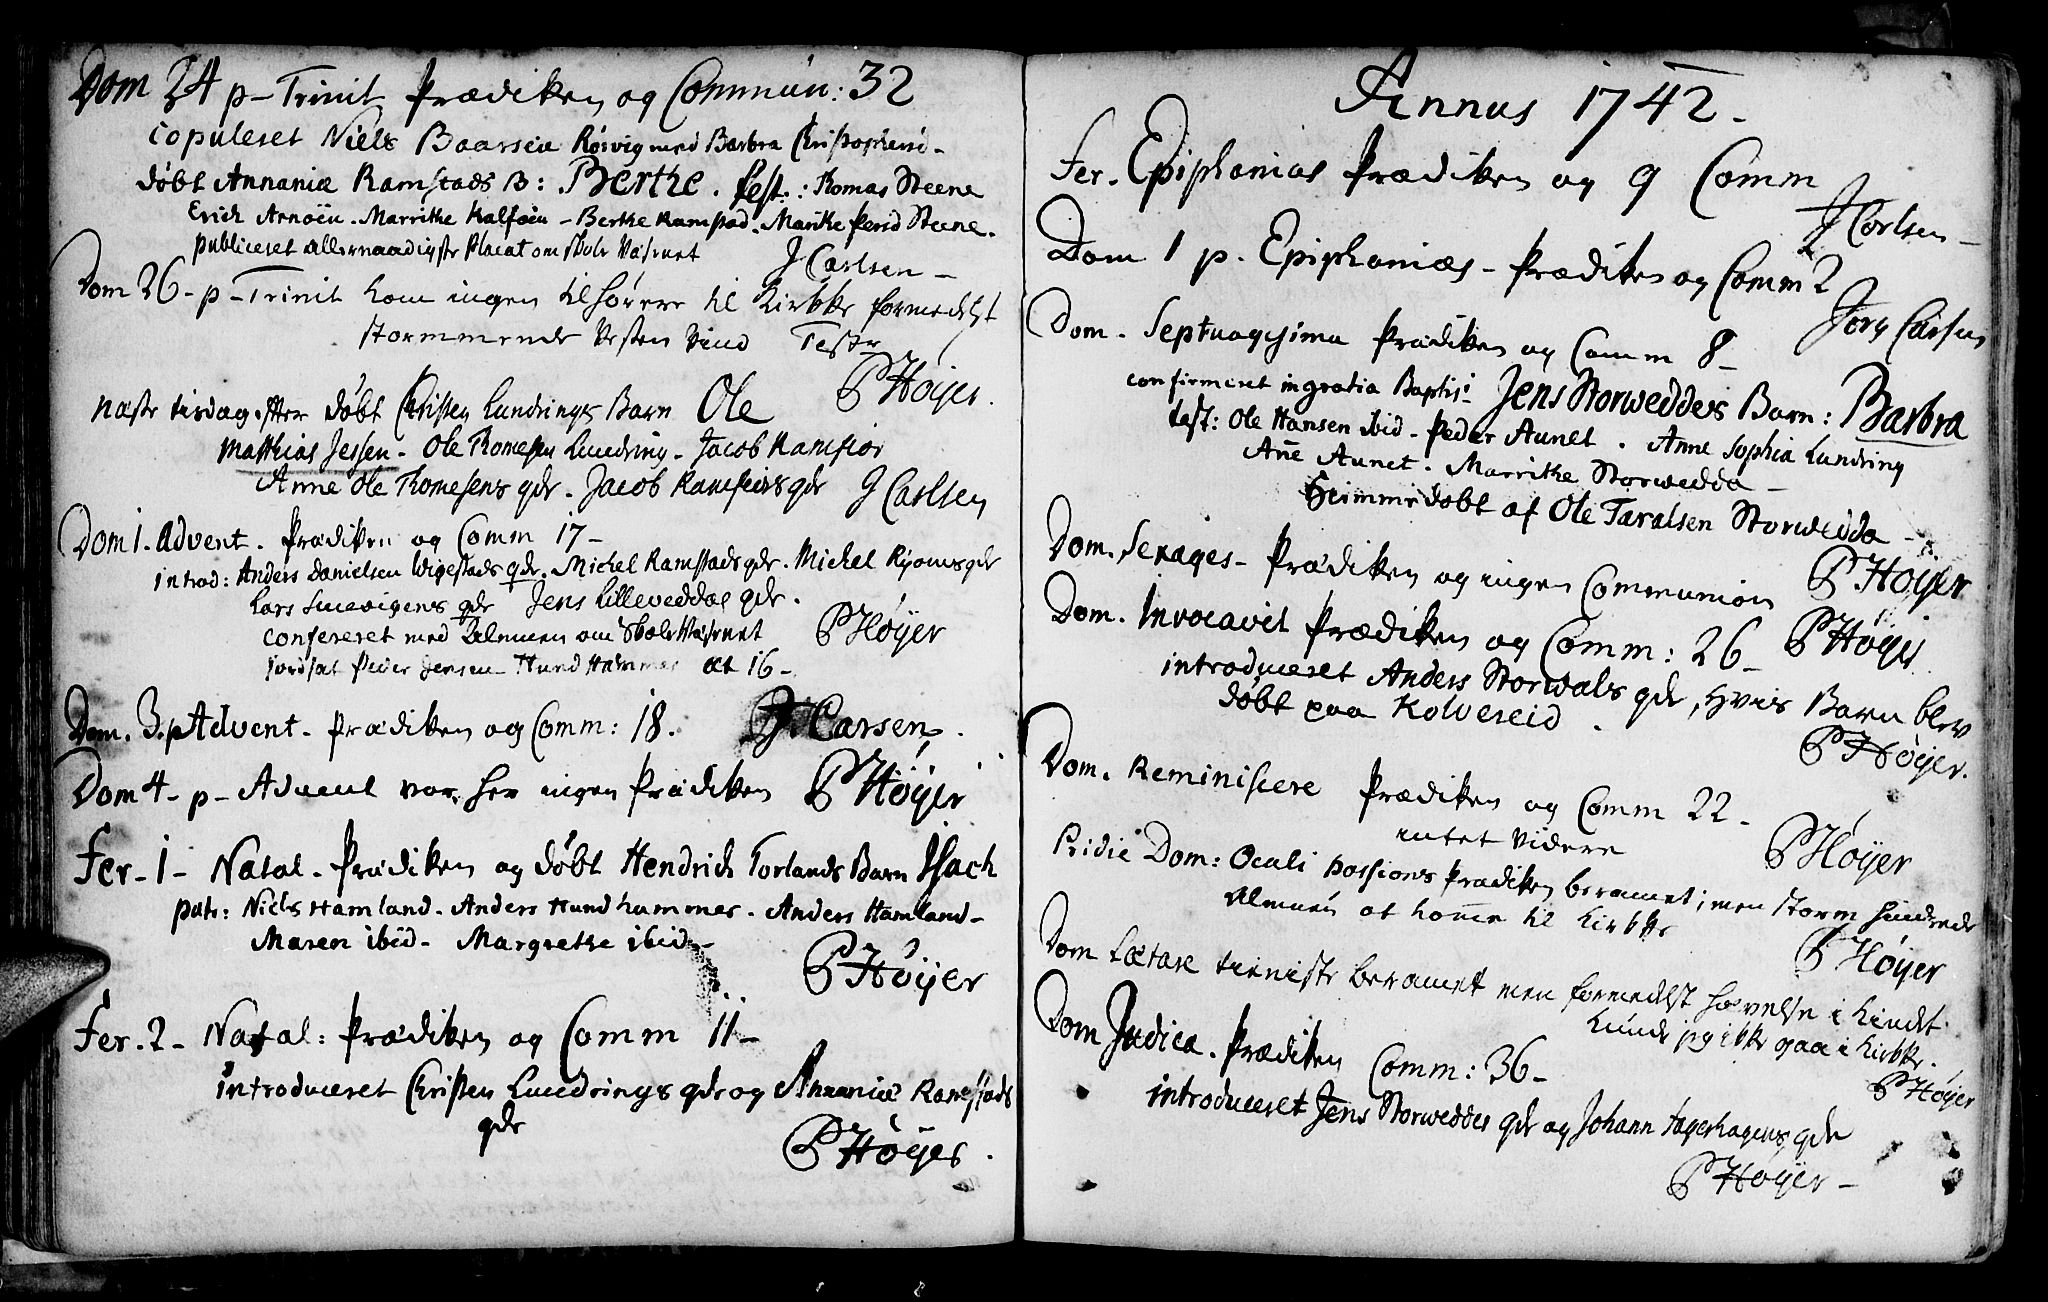 Dom 24 p - Trinit Prædiken og Commun: 32
copuleret Niels Baarsen Rørvig med Barbra Christophersd -
døbt Annaniæ Ramstads B: Berthe. test.: Thomas Steene
Erich Arnøen - Marrithe Kalføen - Berthe Ramstad - Marithe Persd Steene.
publiceret allernaadigste Placat om Skole Væsenet
J Carlsen -
Dom 26 - p - Trinit kom ingen tilhørere til Kirkke formedelst
stormmende Vesten Vind Testr
P Høÿer.
Næste tirsdag efter døbt Christen Lundrings Barn Ole
Matthias Jessen - Ole Thomesen Lundring - Jacob Ramfior
Anne Ole Thomesens qdr. Jacob Ramfiors qdr J Carlsen
Dom 1. Advent. Prædiken og Comm 17 -
introd: Anders Danielsen Wigestads qdr. Michel Ramstads qdr. Michel Ryoms qdr
Lars Smevigens qdr Jens Lilleveddas qdr.
confereret med Almuen om Skole Væsenet
P Høÿer
jordsat Peder Jensen Hund Hammer æt 16 -
Dom. 3. p Advent - Prædiken og Comm: 18. J Carsen.
Dom 4 - p - Advent var her ingen Prædiken P Høÿer
Fer - 1 - Natal - Prædiken og døbt Hendrich Torlands Barn Isach
patr: Niels Hamland - Anders Hundhammer - Anders Hamland -
Maren ibid - Margrethe ibid -
P Høÿer
Fer. 2 - Natal: Prædiken og Comm 11 -
introduceret Christen Lundrings qdr og Annaniæ Ramstads
qdr
P Høÿer.
Annus 1742 -
Fer. Epiphanias Prædiken og 9 Comm
J Carlsen -
Dom 1 p. Epiphanias - Prædiken og Comm 2
Jørg Carsen
Dom. Septuagesima Prædiken og Comm 8 -
confirmeret in gratia Baptis: Jens Storwedders Barn: Barbra
test: Ole Hansen ibid - Peder Aunet. Anne Sophia Lundring
Añe Aunet. Marrithe Storwedda -
Hiemmedøbt af Ole Taralsen Storwedda -
Dom. Sexages - Prædiken og ingen Communion P Høÿer
Dom. Invocavit Prædiken og Comm: 26 - P Høÿer
introduceret Anders Storwals qdr, hvis Barn blev
døbt paa Kolvereid.
P Høÿer.
Dom. Reminiscere Prædiken og Comm 22 -
intet videre
P Høÿer
Pridie Dom: Oculi Passions Prædiken beramet; men storm hindrede
Almuen at kome til Kirkke
P Høÿer
Dom Lætare tieniste beramet men formedelst hævelse i Kindet
kunde jeg ikke gaa i Kirkke.
P Høÿer
Dom Judica. Prædiken Comm: 36 -
introduceret Jens Storweddes qdr og Johann Fagerhagens qdr
P Høÿer -